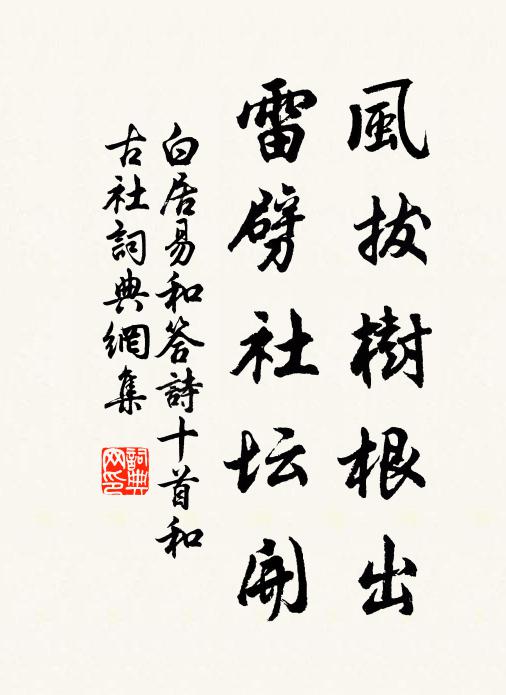 風拔樹根出
雷劈社坛開
白居易和答詩十首和
古社詞典網集
詞典网印